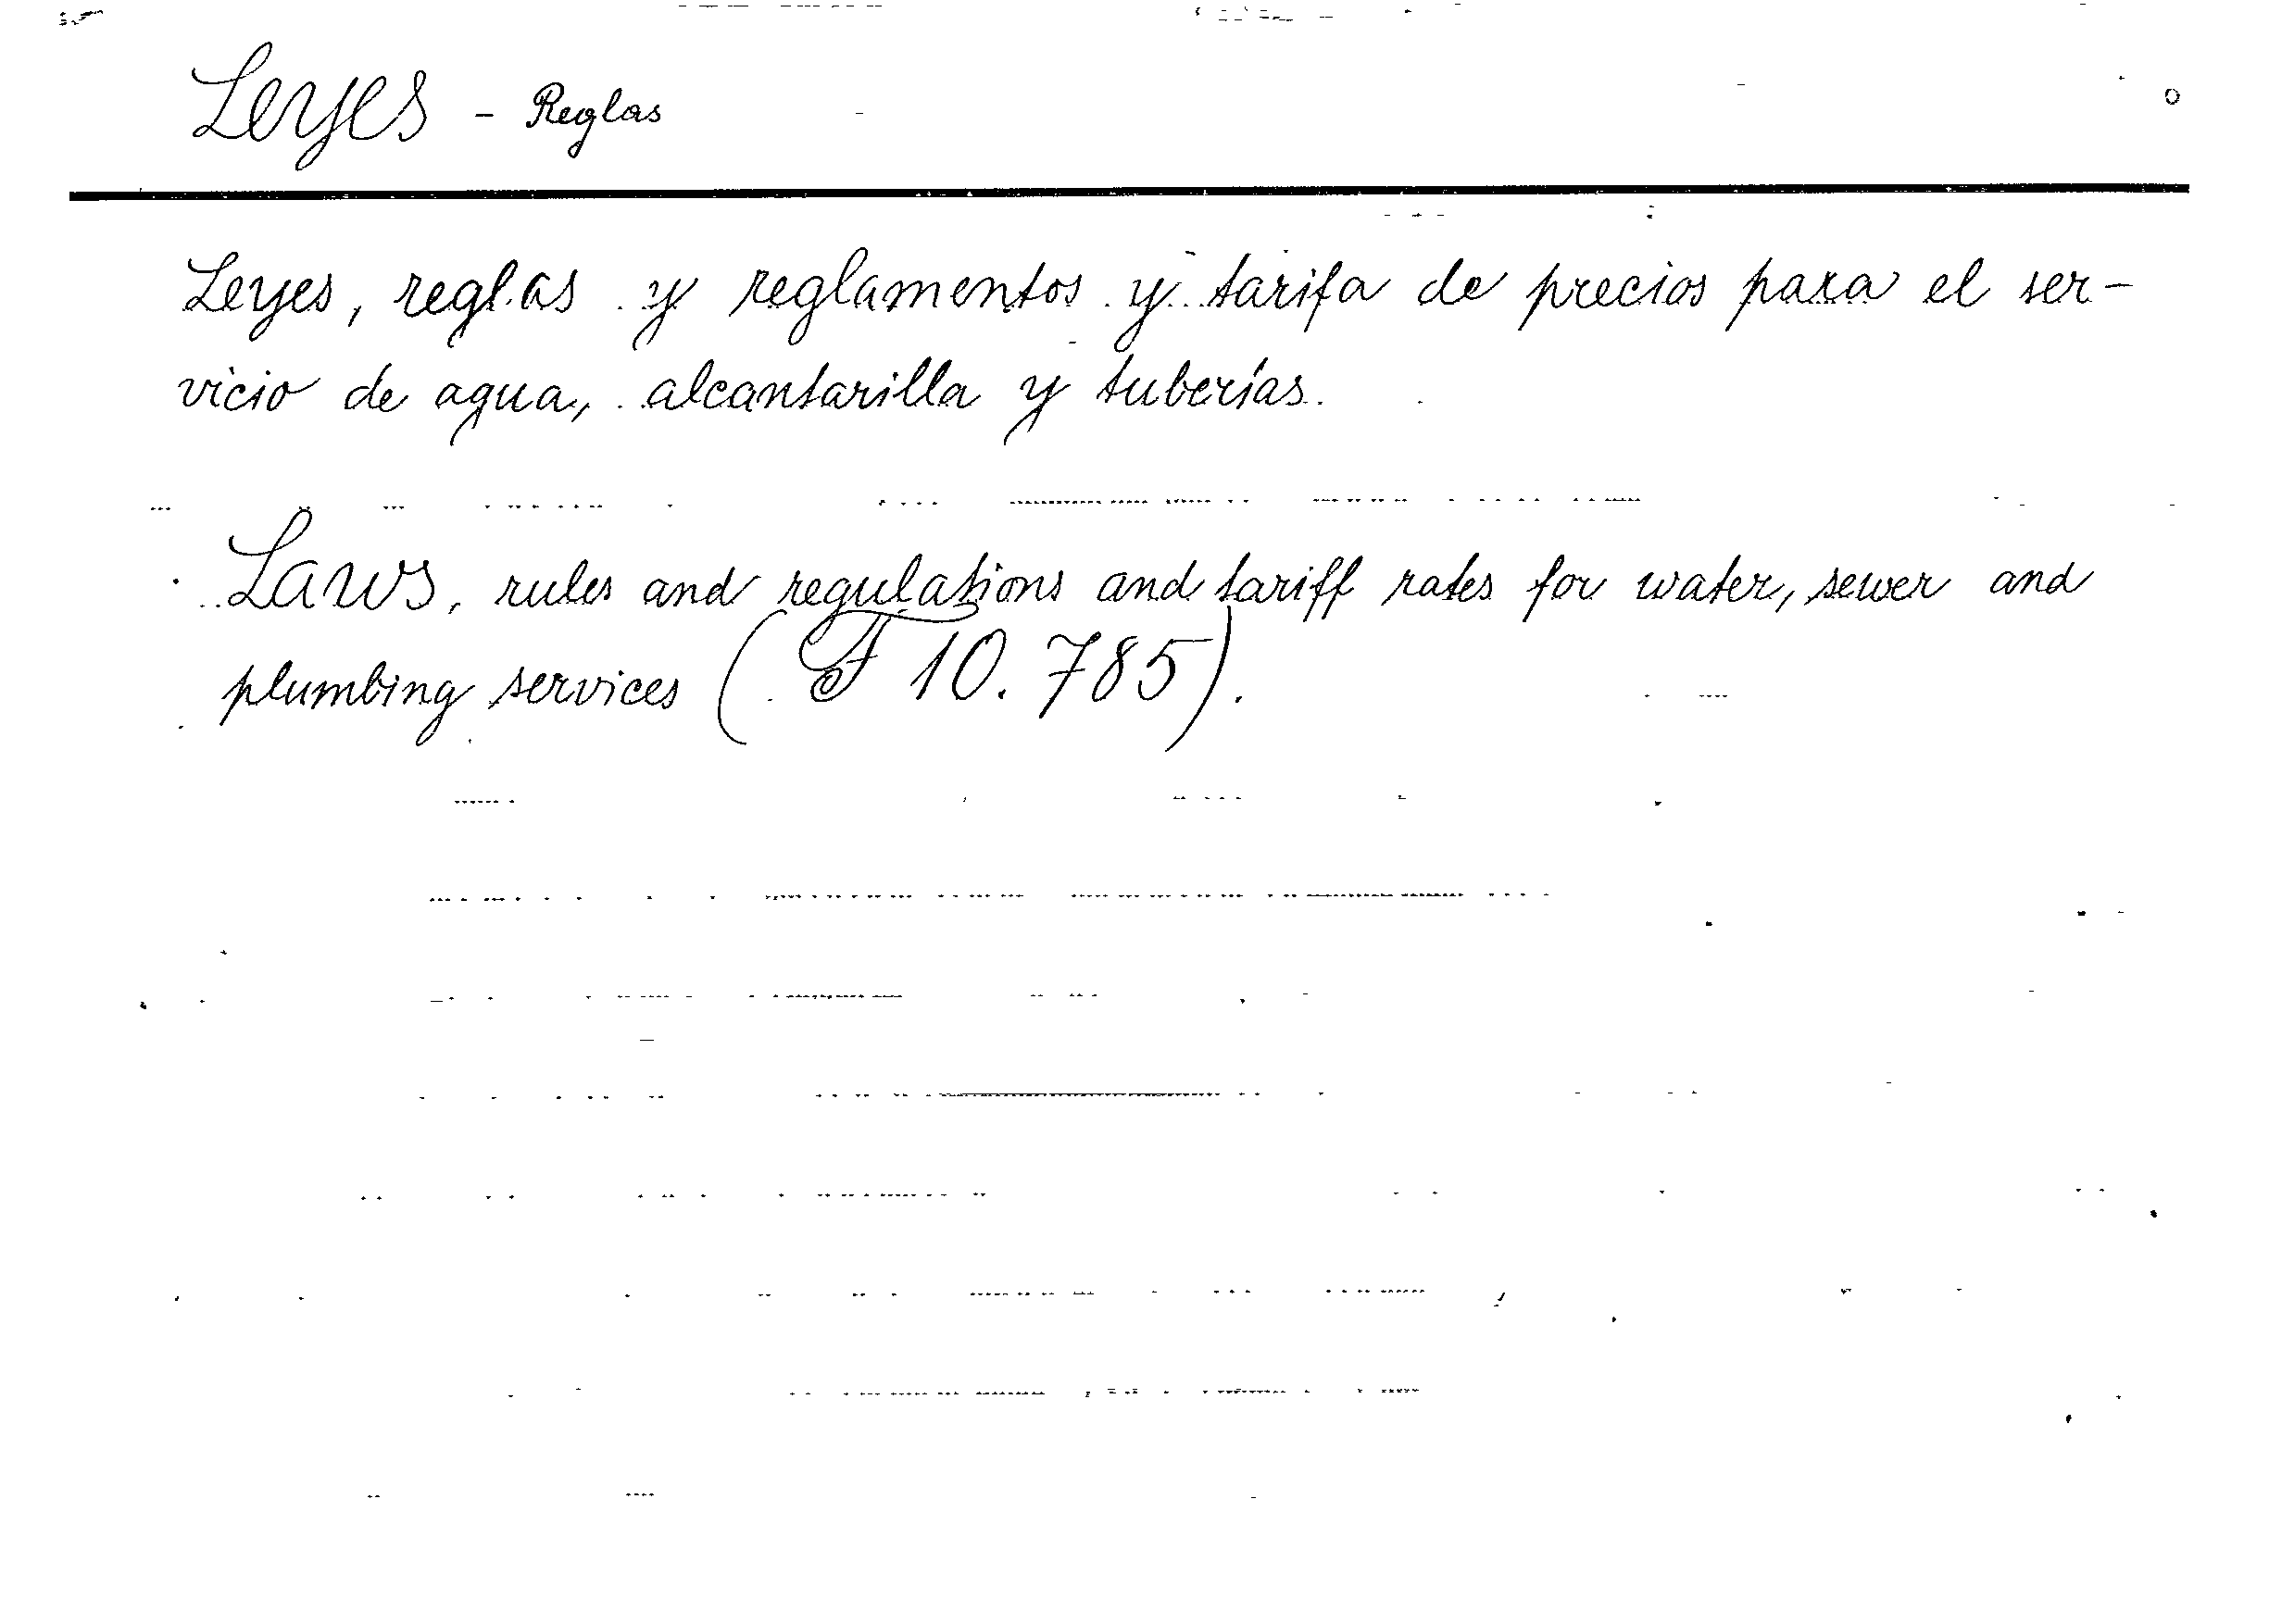 Leyes - Reglas
Leyes, reglas y reglamentos y tarifa de precios para el ser-
vicio de agua, alcantarilla y tuberías.
Laws, rules and regulations and tariff rates for water, sewer and
plumbing services (F 10.785).